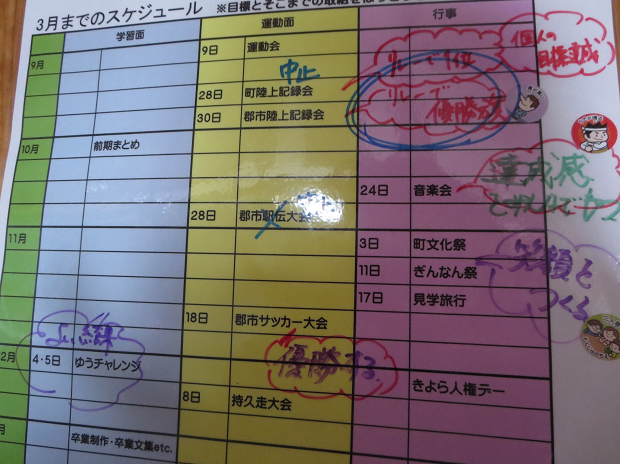 3月までのスケジュール
学習面
運動面
行事
9月
9日 運動会
中止
28日 町陸上記録会
30日 郡市陸上記録会
リレーで1位
リレーで
優勝
個人の
目標達成
10月
前期まとめ
24日 音楽会
28日 郡市駅伝大会
達成感
11月
3日 町文化祭
11日 ぎんなん祭
17日 見学旅行
笑顔を
つくる
18日 郡市サッカー大会
優勝する
2月
4・5日 ゆうチャレンジ
きよら人権デー
8日 持久走大会
月
卒業制作・卒業文集etc.